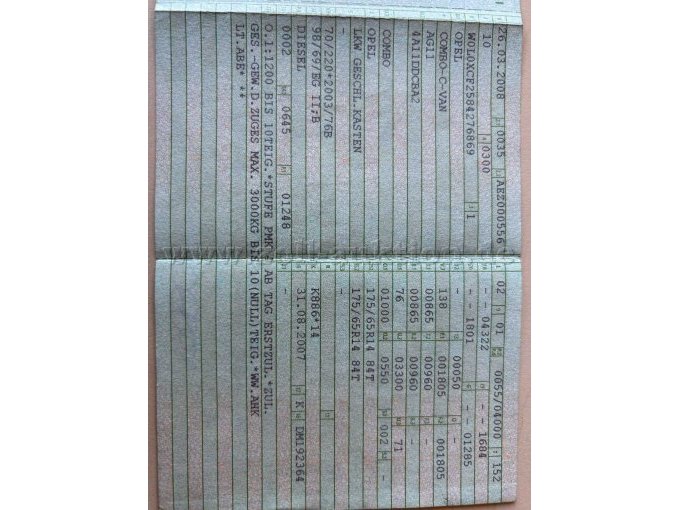 26.03.2008 0035 AEZ000556
10 0300
W0L0XCF2584276869 1
OPEL
COMBO-C-VAN
AG11
4A11DDCBA2
COMBO
OPEL
LKW GESCHL.KASTEN
-
70/220*2003/76B
98/69/EG II;B
DIESEL
0002 0645 01248
02 01 0055/04000 152
- - 04322 - - 1684
- - 1801 - - 01285
- 00050 -
138 001805 001805
00865 00960 -
00865 00960 -
76 03300 71
01000 0550 002 -
175/65R14 84T
175/65R14 84T
-
-
K886*14
31.08.2007 K DM192364
-
O.1:1200 BIS 10TEIG.*STUFE PMK AB TAG ERSTZUL.*ZUL.
GES.-GEW.D.ZUGES MAX. 3000KG BIS 10(NULL)TEIG.*WW.AHK
LT.ABE* **